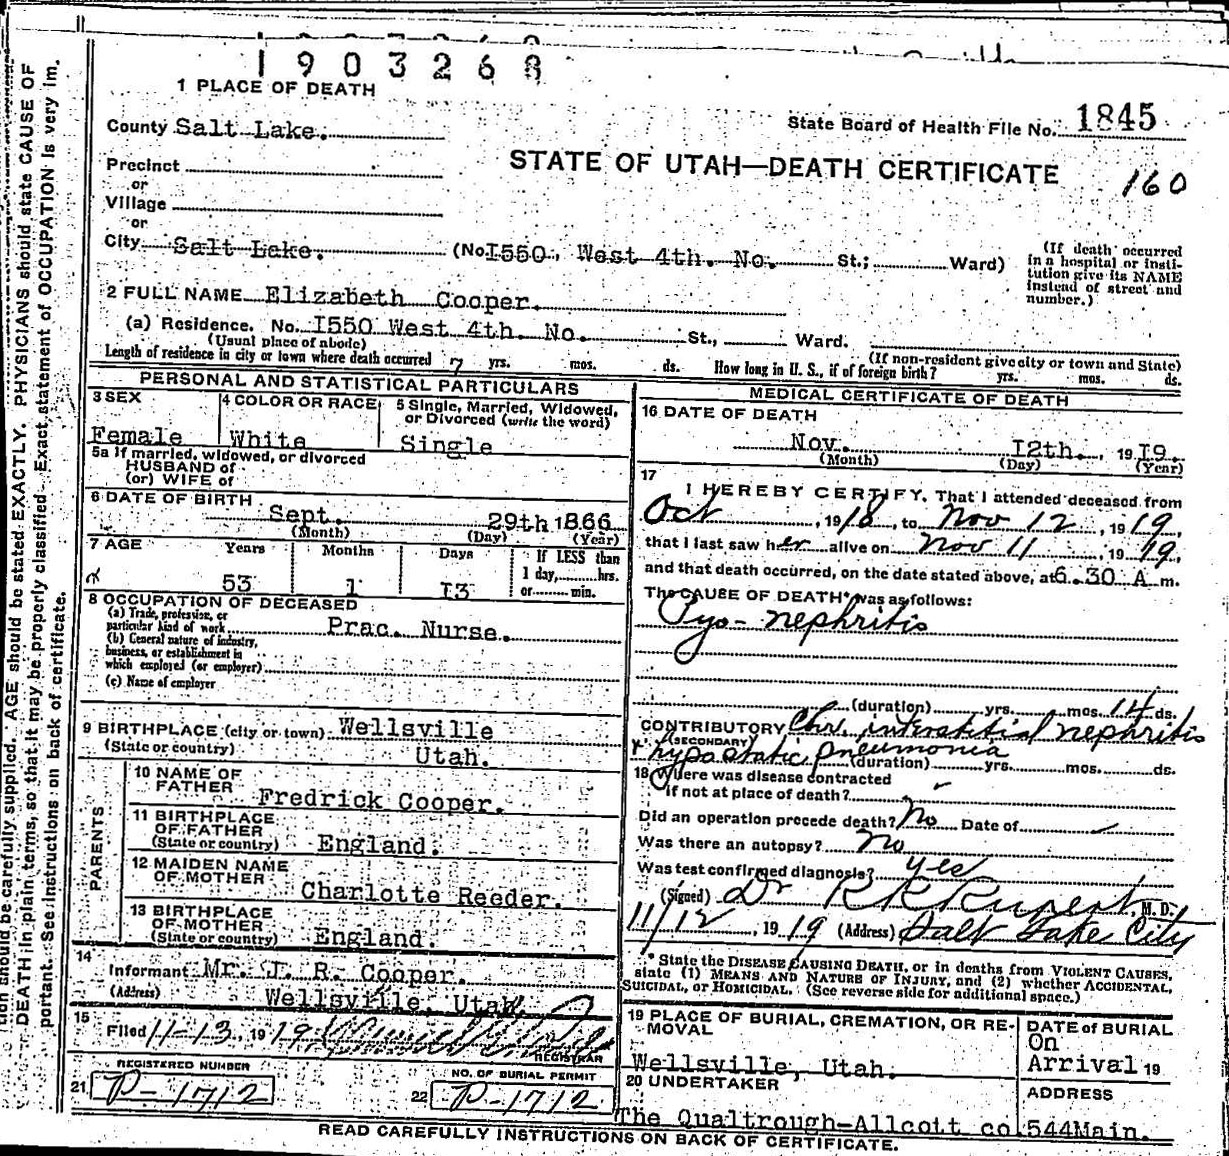 1903268
1 PLACE OF DEATH
County Salt Lake.
State Board of Health File No. 1845
Precinct
STATE OF UTAH—DEATH CERTIFICATE
160
or
Village
or
City Salt Lake. (No. I550, West 4th. No. St.; Ward)
(If death occurred in a hospital or insti-
tution give its NAME
instead of street and
number.)
2 FULL NAME Elizabeth Cooper.
(a) Residence. No. I550 West 4th. No. St., Ward.
(Usual place of abode) (If non-resident give city or town and State)
Length of residence in city or town where death occurred 7 yrs. mos. ds. How long in U. S., if of foreign birth? yrs. mos. ds.
PERSONAL AND STATISTICAL PARTICULARS
3 SEX
Female
4 COLOR OR RACE
White
5 Single, Married, Widowed,
or Divorced (write the word)
Single
5a If married, widowed, or divorced
HUSBAND of
(or) WIFE of
6 DATE OF BIRTH
Sept. 29th 1866
(Month) (Day) (Year)
7 AGE Years Months Days If LESS than
1 day, hrs.
or min.
53 1 I3
8 OCCUPATION OF DECEASED
(a) Trade, profession, or
particular kind of work Prac. Nurse.
(b) General nature of industry,
business, or establishment in
which employed (or employer)
(c) Name of employer
9 BIRTHPLACE (city or town) Wellsville
(State or country) Utah.
PARENTS
10 NAME OF
FATHER Fredrick Cooper.
11 BIRTHPLACE
OF FATHER
(State or country) England.
12 MAIDEN NAME
OF MOTHER Charlotte Reeder.
13 BIRTHPLACE
OF MOTHER
(State or country) England.
14
Informant Mr. J. R. Cooper.
(Address) Wellsville, Utah.
15
Filed 11-13, 1919
REGISTRAR
REGISTERED NUMBER
21 P-1712
NO. OF BURIAL PERMIT
22 P-1712
MEDICAL CERTIFICATE OF DEATH
16 DATE OF DEATH
Nov. I2th., 19I9.
(Month) (Day) (Year)
17
I HEREBY CERTIFY, That I attended deceased from
Oct, 1918, to Nov 12, 1919,
that I last saw her alive on Nov 11, 1919,
and that death occurred, on the date stated above, at 6.30 A m.
The CAUSE OF DEATH* was as follows:
Pyo-nephritis
(duration) yrs. mos. 14 ds.
CONTRIBUTORY Chr. interstitial nephritis
(SECONDARY)
+ hypostatic pneumonia
(duration) yrs. mos. ds.
18 Where was disease contracted
if not at place of death?
Did an operation precede death? No Date of
Was there an autopsy? No
Was test confirmed diagnosis? yes
(Signed) Dr R R Rupert, M.D.
11/12, 1919 (Address) Salt Lake City
* State the DISEASE CAUSING DEATH, or in deaths from VIOLENT CAUSES,
state (1) MEANS AND NATURE OF INJURY, and (2) whether ACCIDENTAL,
SUICIDAL, or HOMICIDAL. (See reverse side for additional space.)
19 PLACE OF BURIAL, CREMATION, OR RE-
MOVAL
Wellsville, Utah.
DATE of BURIAL
On
Arrival 19
20 UNDERTAKER
The Qualtrough-Allcott co.
ADDRESS
544Main.
READ CAREFULLY INSTRUCTIONS ON BACK OF CERTIFICATE.
tion should be carefully supplied. AGE should be stated EXACTLY. PHYSICIANS should state CAUSE OF
DEATH in plain terms, so that it may be properly classified. Exact statement of OCCUPATION is very im.
portant. See instructions on back of certificate.